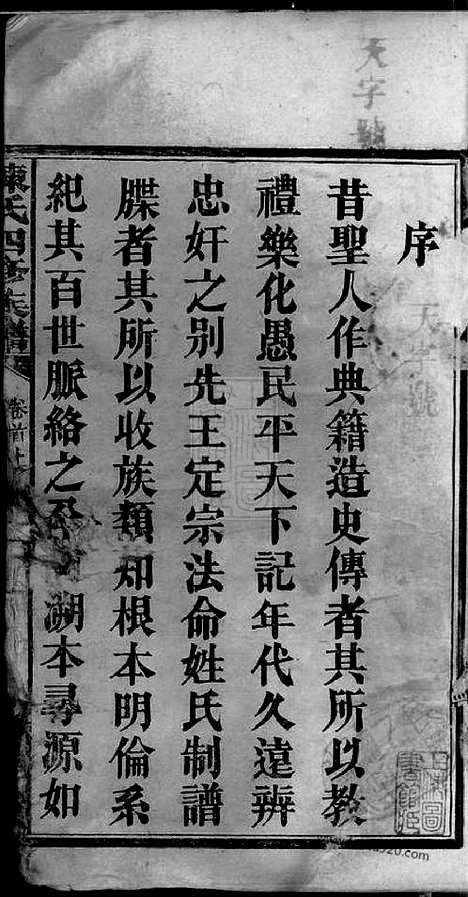 天字號
天字號
序
昔聖人作典籍造史傳者其所以教
禮樂化愚民平天下記年代久遠辨
忠奸之別先王定宗法命姓氏制譜
牒者其所以收族類知根本明倫系
紀其百世脈絡之 溯本尋源如
陳氏四修族譜
卷首上